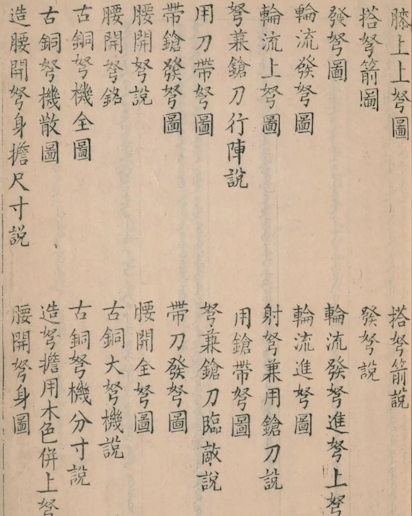 膝上上弩圖
搭弩箭說
搭弩箭圖
發弩說
發弩圖
輪流發弩進上弩
輪流發弩圖
輪流進弩圖
輪流上弩圖
射弩兼用鎗刀說
弩兼鎗刀行陣說
用鎗帶弩圖
用刀帶弩圖
弩兼鎗刀臨敵說
帶鎗發弩圖
帶刀發弩圖
腰開弩說
腰開全弩圖
腰開弩銘
古銅大弩機說
古銅弩機全圖
古銅弩機分寸說
古銅弩機散圖
造弩擔用木色併上弩
造腰開弩身擔尺寸說
腰開弩身圖